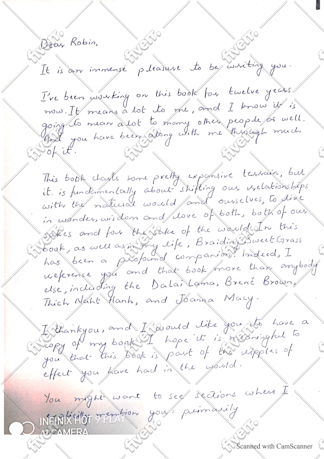 Dear Robin,
It is an immense pleasure to be writing you.
I've been working on this book for twelve years
now. It means a lot to me, and I know it is
going to mean a lot to many other people as well.
And you have been along with me through much
of it.
This book charts some pretty expansive terrain, but
it is fundamentally about shifting our relationships
with the natural world and ourselves, to live
in wonder, wisdom and love of both, both of our
sakes and for the sake of the world. In this
book, as well as in my life, Braiding Sweet Grass
has been a profound companion. Indeed, I
reference you and that book more than anybody
else, including the Dalai Lama, Brené Brown,
Thich Naht Hanh, and Joanna Macy.
I thank you, and I would like you to have a
copy of my book. I hope it is meaningful to
you that this book is part of the ripples of
effect you have had in the world.
You might want to see sections where I
explicitly mention you, primarily
INFINIX HOT 9 PLAY
AI CAMERA
Scanned with CamScanner
fiverr